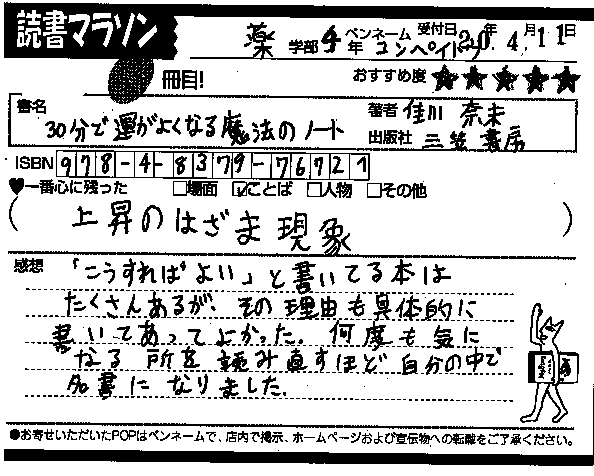 読書マラソン
薬 学部 4年 ペンネーム コンペイトウ 受付日 20年 4月 11日
冊目! おすすめ度 ★★★★★
書名 30分で運がよくなる魔法のノート
著者 佳川 奈未
出版社 三笠書房
ISBN 978-4-8379-7672-1
♥一番心に残った □場面 ☑ことば □人物 □その他
(上昇のはざま現象)
感想 「こうすればよい」と書いてる本は
たくさんあるが、その理由も具体的に
書いてあってよかった。何度も気に
なる所を読み直すほど自分の中で
名書になりました。
●お寄せいただいたPOPはペンネームで、店内で掲示、ホームページおよび宣伝物への転載をご了承ください。